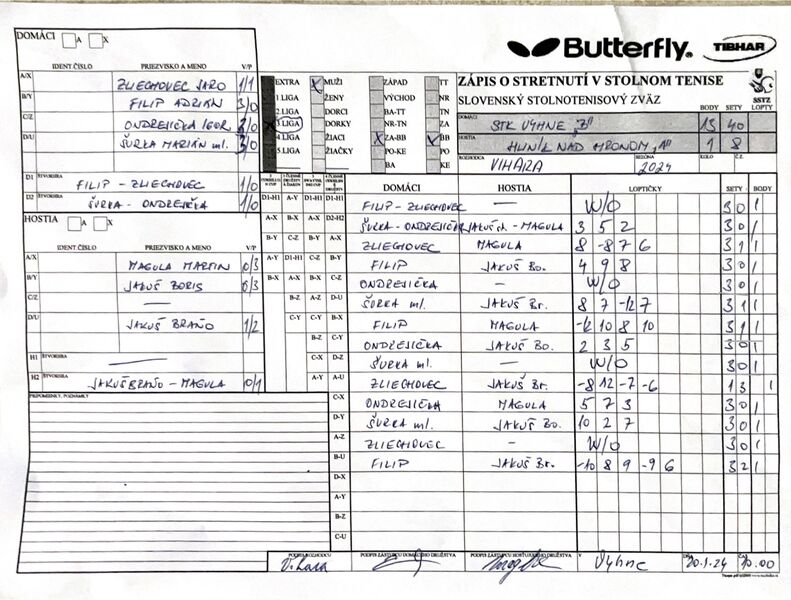 Butterfly. TIBHAR
DOMÁCI A X
IDENT ČÍSLO PRIEZVISKO A MENO V/P
A/X ZLIECHOVEC JARO 1/1
B/Y FILIP ADRIÁN 3/0
C/Z ONDREJIČKA IGOR 3/0
D/U ŠURKA MARIÁN ml. 3/0
D1 ŠTVORHRA FILIP - ZLIECHOVEC 1/0
D2 ŠTVORHRA ŠURKA - ONDREJIČKA 1/0
HOSTIA A X
IDENT ČÍSLO PRIEZVISKO A MENO V/P
A/X MAGULA MARTIN 0/3
B/Y JAKUŠ BORIS 0/3
C/Z —
D/U JAKUŠ BRAŇO 1/2
H1 ŠTVORHRA —
H2 ŠTVORHRA JAKUŠ BRAŇO - MAGULA 0/1
PRIPOMIENKY, POZNÁMKY
EXTRA X MUŽI ZÁPAD TT
1 LIGA ŽENY VÝCHOD NR
2 LIGA DORCI BA-TT TN
3 LIGA DORKY NR-TN ZA
ŽIACI X ZA-BB X BB
ŽIAČKY PO-KE PO
BA KE
ZÁPIS O STRETNUTÍ V STOLNOM TENISE
SLOVENSKÝ STOLNOTENISOVÝ ZVÄZ
SSTZ
BODY SETY LOPTY
DOMÁCI STK VYHNE "B" 13 40
HOSTIA HLINÍK NAD HRONOM "A" 1 8
ROZHODCA VIHARA SEZÓNA 2024 KOLO Č.Z.
DOMÁCI HOSTIA LOPTIČKY SETY BODY
D1-H1 A-Y D1-H1 D1-H1 FILIP - ZLIECHOVEC — W/O 3 0 1
A-X B-X A-X D2-H2 ŠURKA - ONDREJIČKA JAKUŠ - MAGULA 3 5 2 3 0 1
B-Y C-Z B-Y A-X ZLIECHOVEC MAGULA 8 -8 7 6 3 1 1
A-Y D1-H1 C-Z B-Y FILIP JAKUŠ Bo. 4 9 8 3 0 1
B-X A-X B-X C-Z ONDREJIČKA — W/O 3 0 1
B-Z A-Z D-U ŠURKA ml. JAKUŠ Br. 8 7 -12 7 3 1 1
C-Y C-Y B-X FILIP MAGULA -12 10 8 10 3 1 1
B-Z C-Y ONDREJIČKA JAKUŠ Bo. 2 3 5 3 0 1
C-X D-Z ŠURKA ml. — W/O 3 0 1
A-Y A-U ZLIECHOVEC JAKUŠ Br. -8 12 -7 -6 1 3 1
C-X ONDREJIČKA MAGULA 5 7 3 3 0 1
D-Y ŠURKA ml. JAKUŠ Bo. 10 2 7 3 0 1
A-Z ZLIECHOVEC — W/O 3 0 1
B-U FILIP JAKUŠ Br. -10 8 9 -9 6 3 2 1
D-X
A-Y
B-Z
C-U
PODPIS ROZHODCU PODPIS ZÁSTUPCU DOMÁCEHO DRUŽSTVA PODPIS ZÁSTUPCU HOSŤUJÚCEHO DRUŽSTVA V Vyhne DŇA 20.1.24 ČAS 10.00